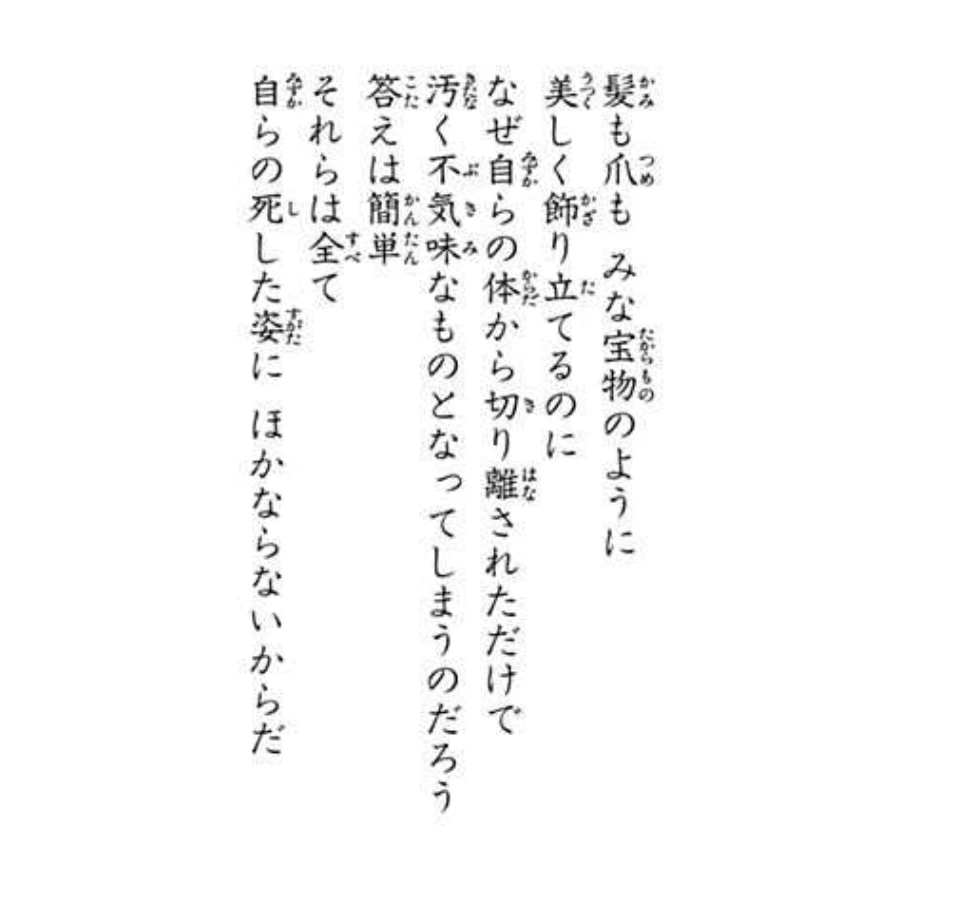 髪も爪も　みな宝物のように
美しく飾り立てるのに
なぜ自らの体から切り離されただけで
汚く不気味なものとなってしまうのだろう
答えは簡単
それらは全て
自らの死した姿に　ほかならないからだ